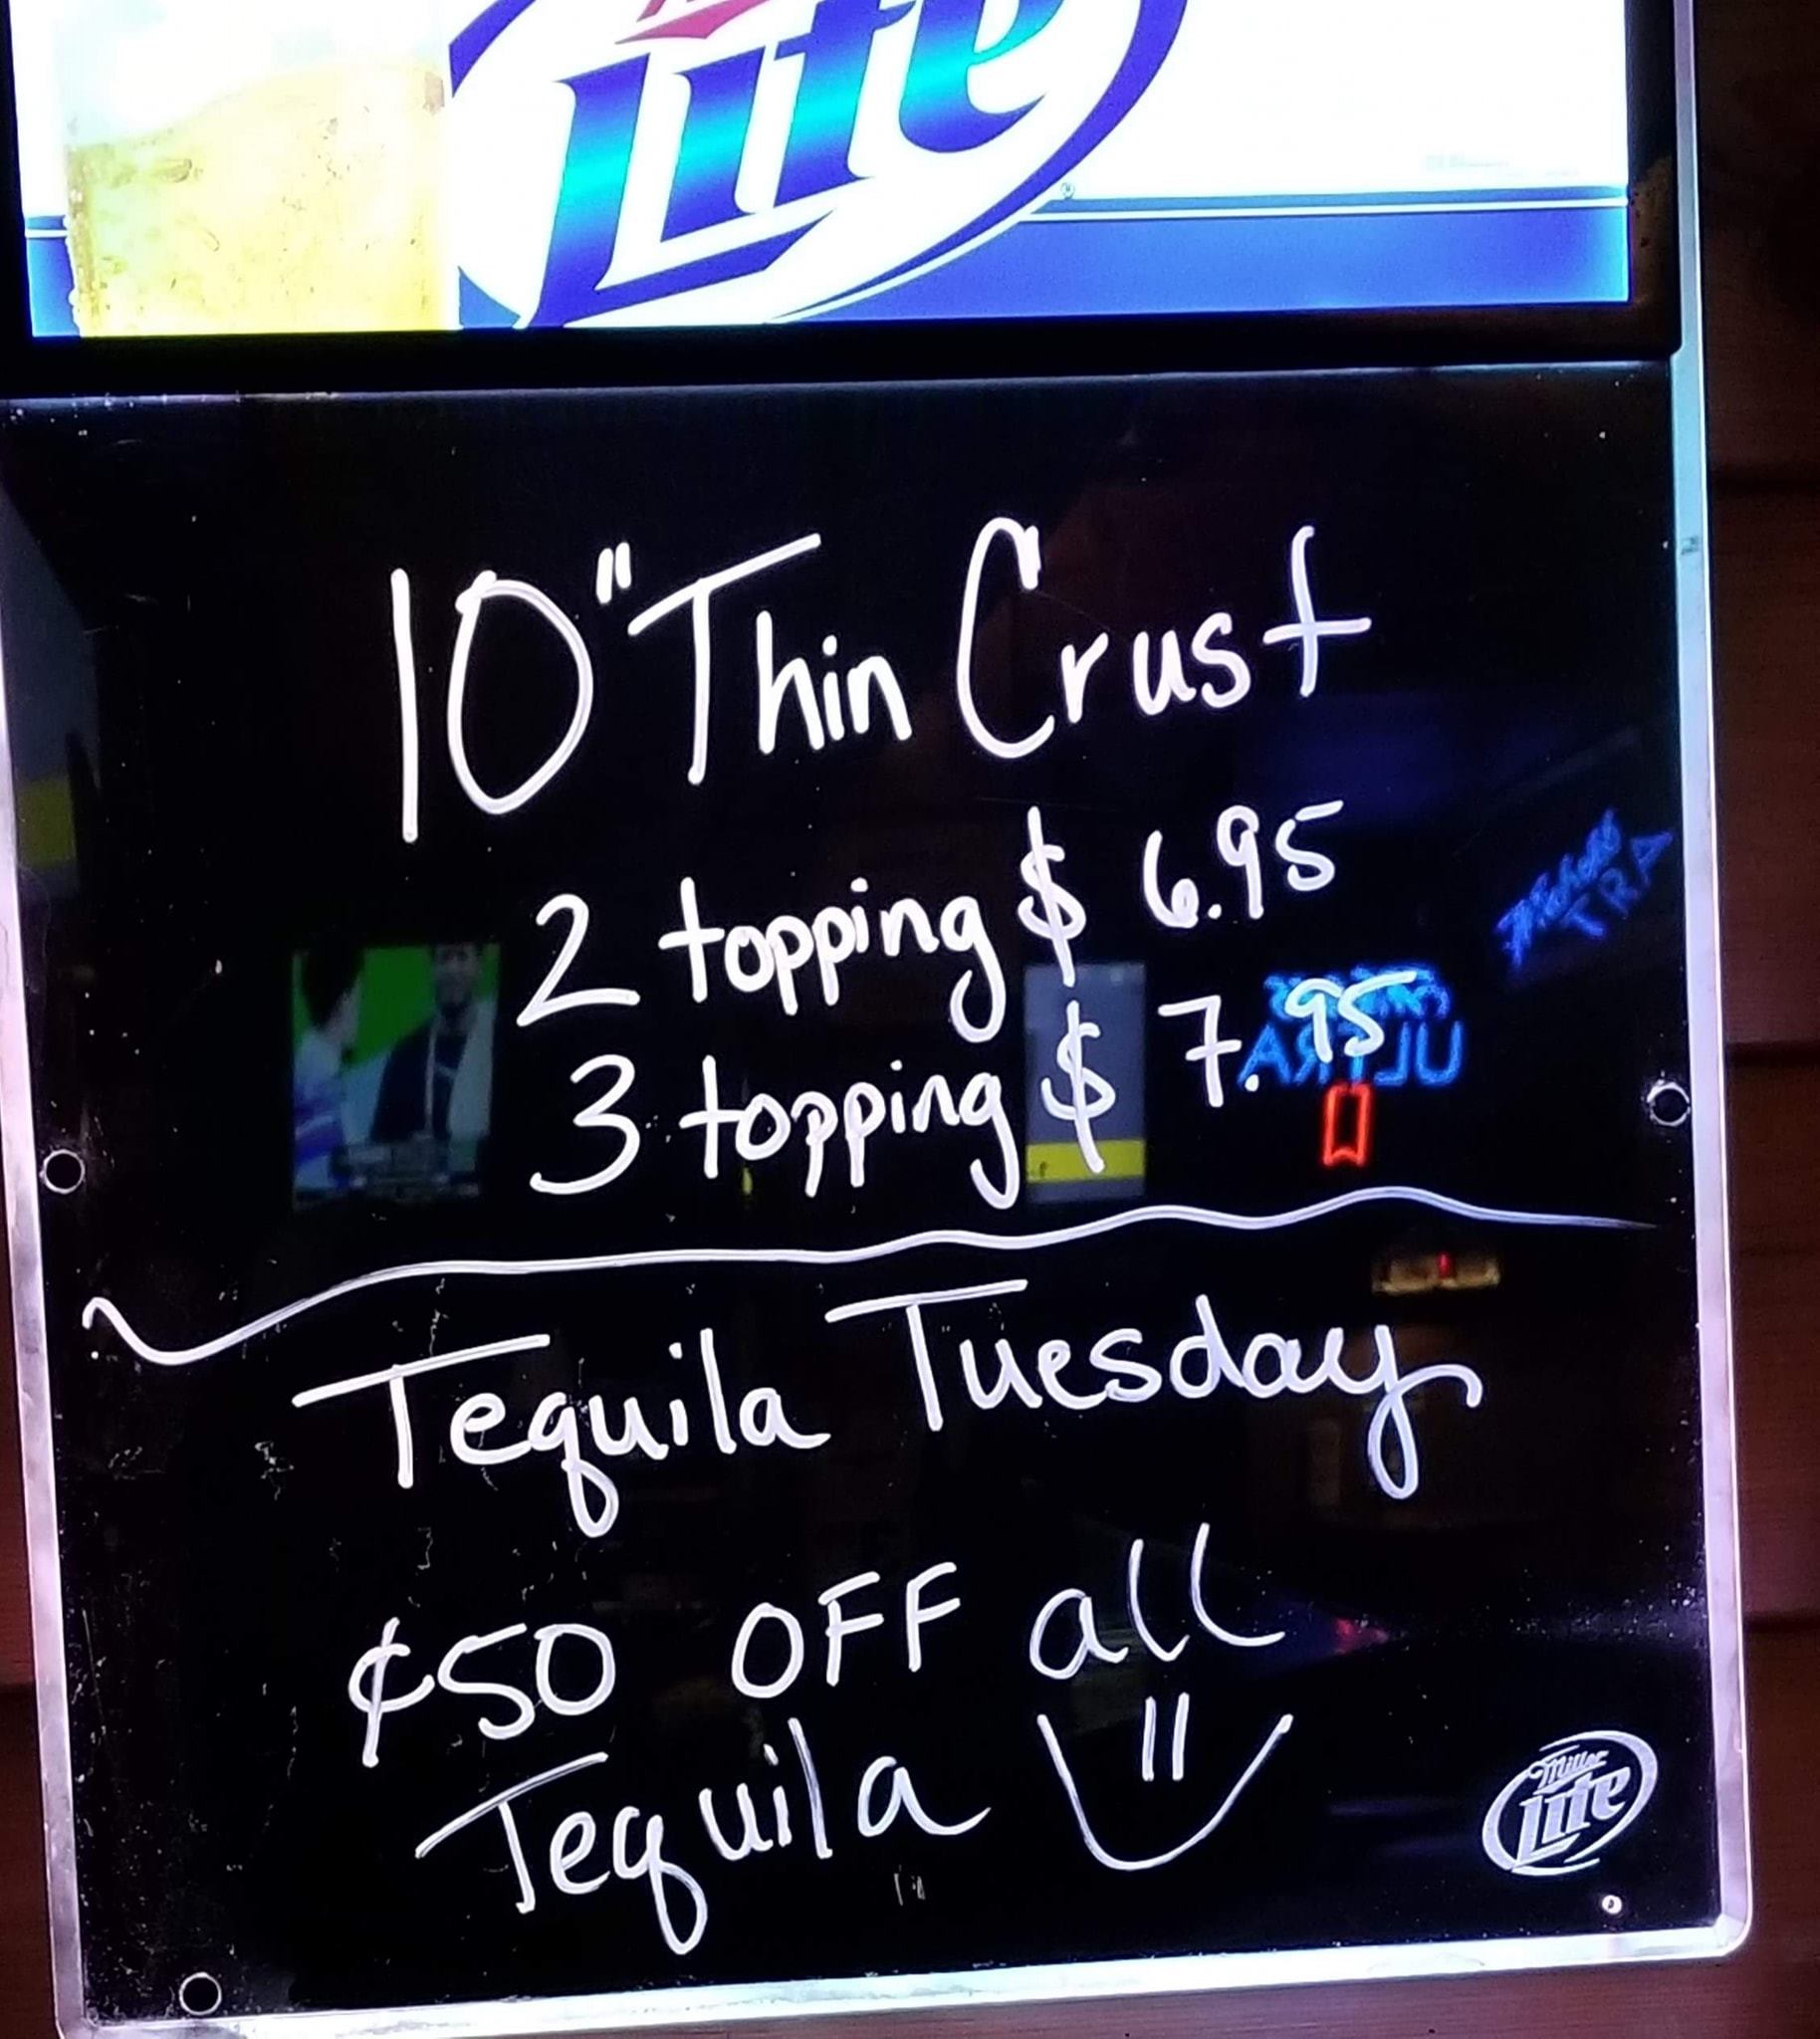 Lite
10" Thin Crust
2 topping $ 6.95
3 topping $ 7.95
ULTRA
TRA
Tequila Tuesday
¢50 OFF all
Tequila
Miller
Lite